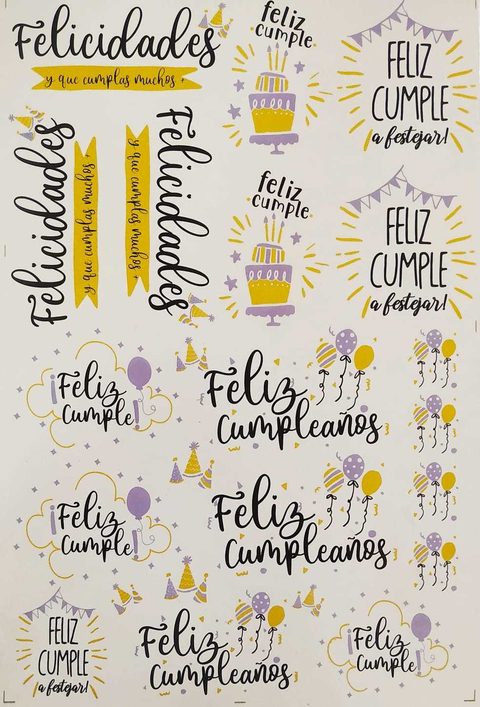 Felicidades
y que cumplas muchos +
feliz
cumple
FELIZ
CUMPLE
a festejar!
Felicidades
y que cumplas muchos +
Felicidades
y que cumplas muchos +
feliz
cumple
FELIZ
CUMPLE
a festejar!
¡Feliz
Cumple!
Feliz
Cumpleaños
¡Feliz
Cumple!
Feliz
Cumpleaños
FELIZ
CUMPLE
a festejar!
Feliz
Cumpleaños
¡Feliz
Cumple!